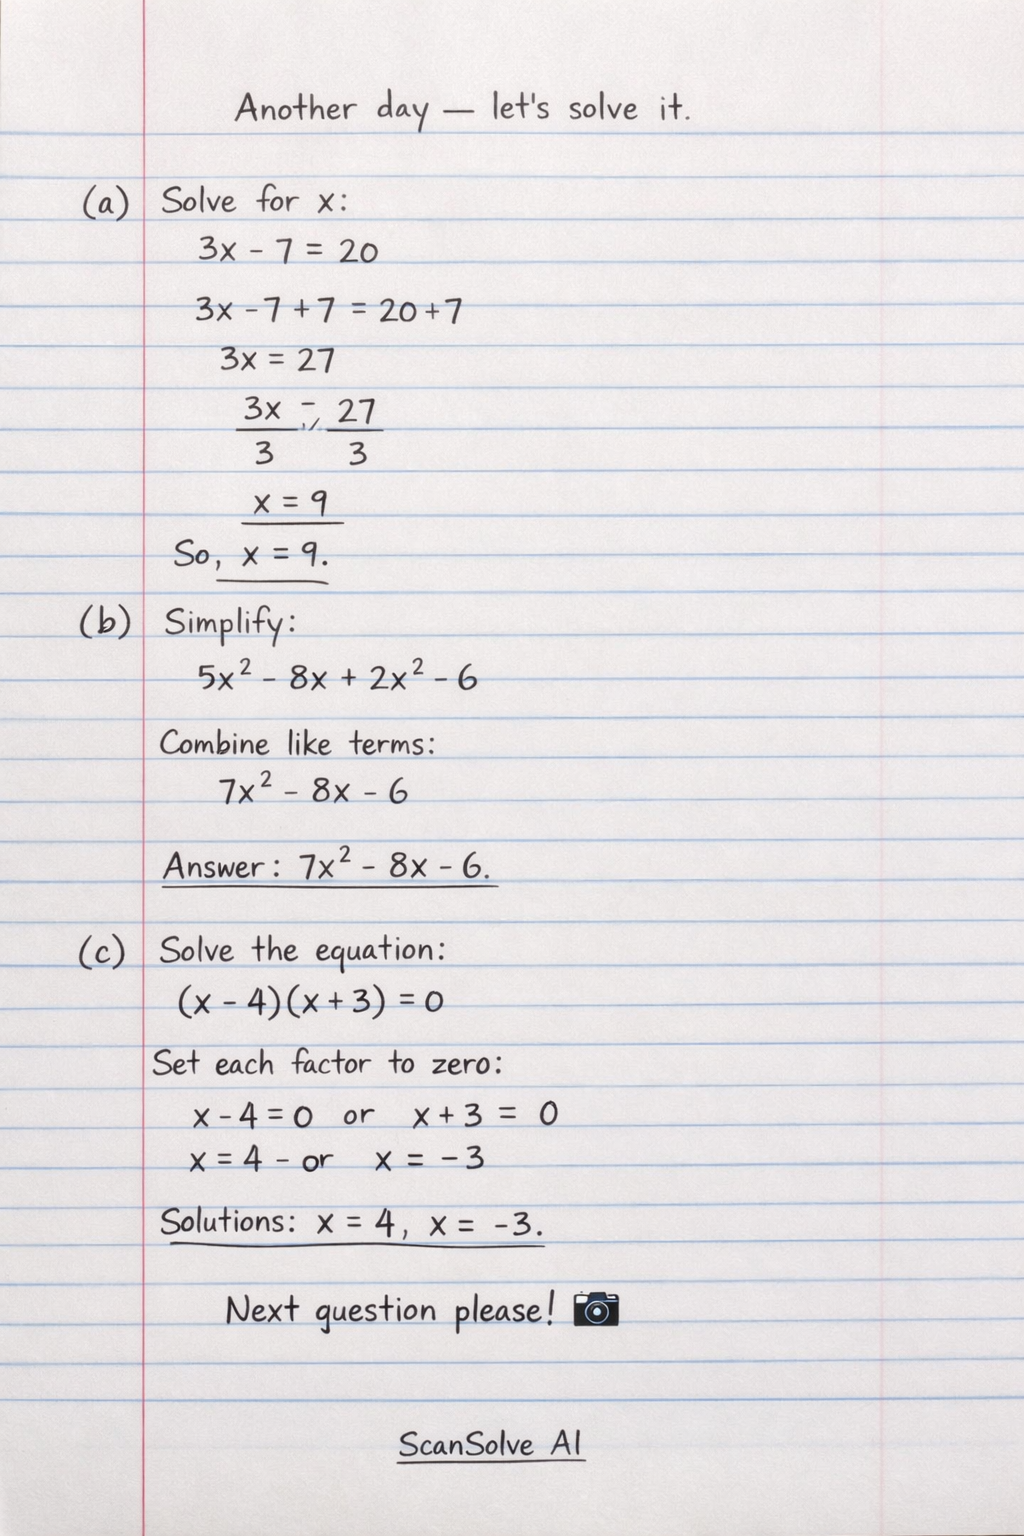 Another day — let's solve it.
(a) Solve for x:
3x - 7 = 20
3x - 7 + 7 = 20 + 7
3x = 27
3x = 27
3 3
x = 9
So, x = 9.
(b) Simplify:
5x² - 8x + 2x² - 6
Combine like terms:
7x² - 8x - 6
Answer: 7x² - 8x - 6.
(c) Solve the equation:
(x - 4)(x + 3) = 0
Set each factor to zero:
x - 4 = 0 or x + 3 = 0
x = 4 - or x = -3
Solutions: x = 4, x = -3.
Next question please! 📷
ScanSolve AI